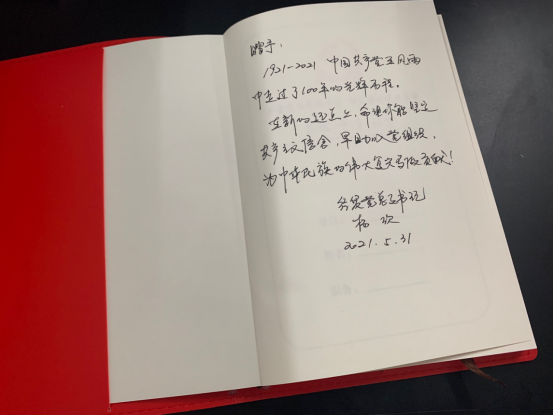 1921-2021 中国共产党在风雨
中走过了100年的光辉历程。
在新的起点上，希望你能坚定
共产主义信念，早日加入党组织，
为中华民族的伟大复兴多做贡献！
党总支书记
杨欢
2021.5.31